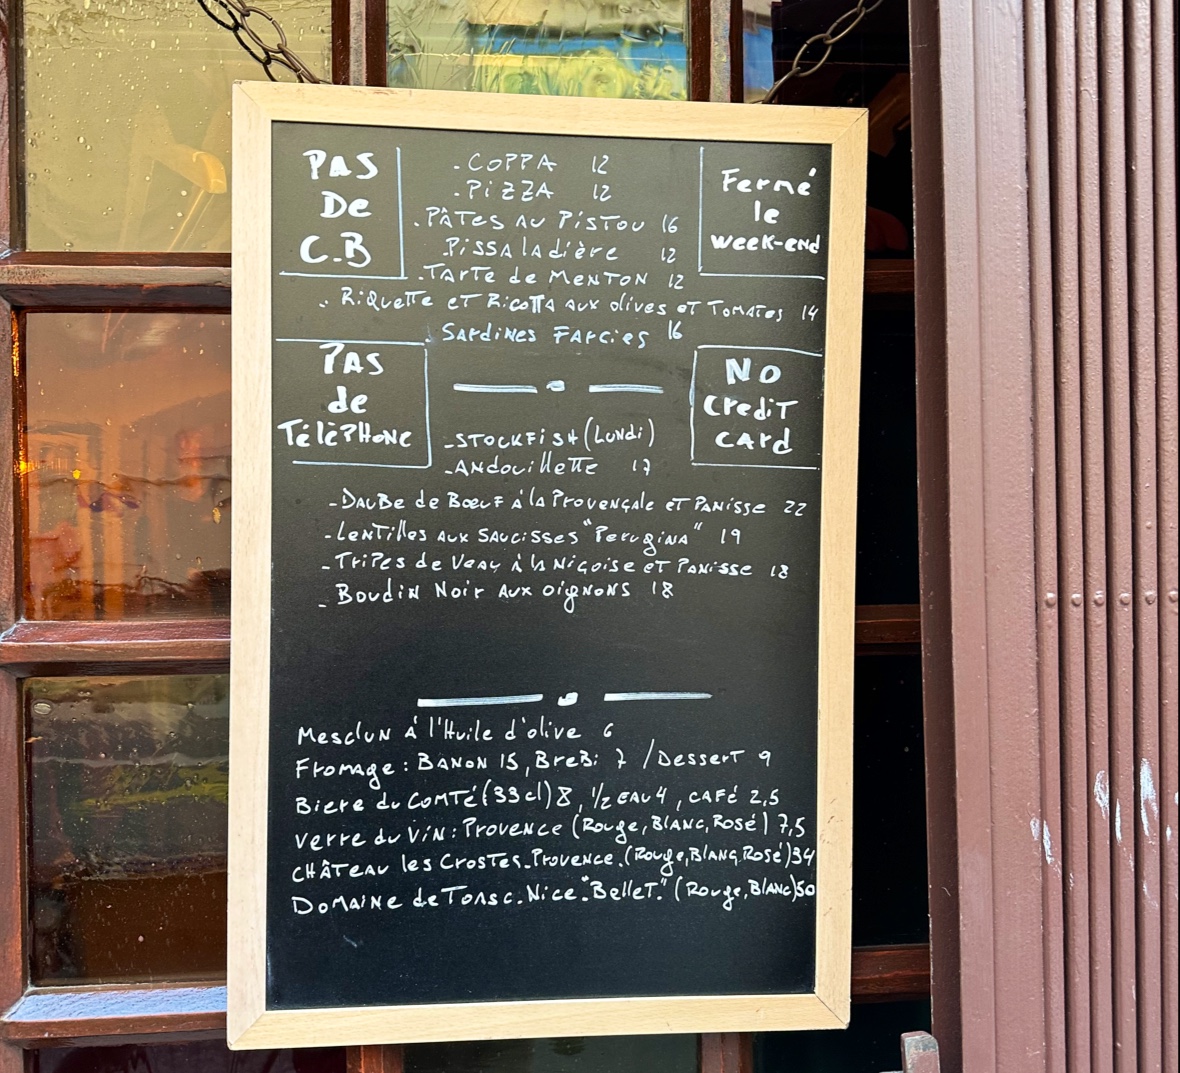 PAS
De
C.B
.COPPA 12
.PiZZA 12
.PÂTES AU PISTOU 16
.PissALAdière 12
.TArTe de MENTON 12
. RiQuETTe eT RicoTTA AUX olives eT TomATes 14
. SArdiNes FArcies 16
Fermé
le
week-end
PAS
de
TélèPHoNe
-STOCKFiSH (LuNdi)
-ANdouilleTTe 17
NO
CrediT
CArd
-DAuBe de BœuF à la ProveNçAle eT PANisse 22
-LeNTilles AUX SAucisses "PerugiNA" 19
-TriPes de VeAu à lA Niçoise eT PANisse 18
- BoudiN Noir AUX oigNoNs 18
MescluN à l'Huile d'olive 6
FromAge : BANON 15, BreBi 7 / DesserT 9
Biere du ComTé (33cl) 8, 1/2 EAU 4, CAFé 2,5
Verre du ViN : ProveNce (Rouge, BlANc, Rosé) 7,5
CHÂTeAu les CrosTes.ProveNce.(Rouge,BlANc,Rosé)34
DomAiNe de ToAsc.Nice."BelleT." (Rouge, BlANc)50